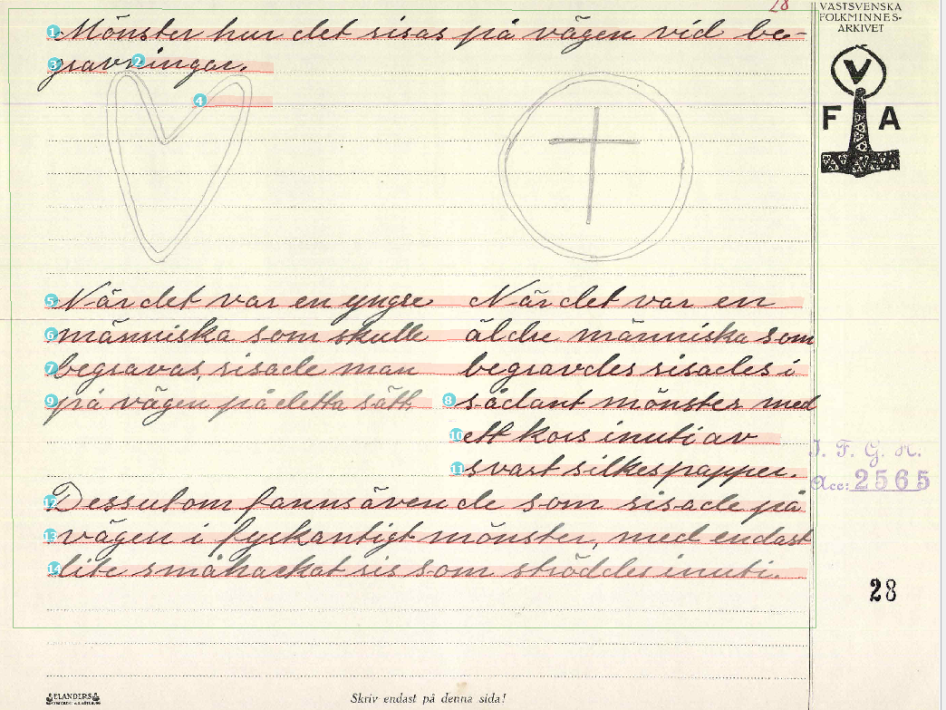 28
Mönster hur det risas på vägen vid be-
gravningar.
När det var en yngre
människa som skulle
begravas, risade man
på vägen på detta sätt.
När det var en
äldre människa som
begravdes risades i
sådant mönster med
ett kors inuti av
svart silkespapper.
Dessutom fanns även de som risade på
vägen i fyrkantigt mönster, med endast
lite småhackat ris som ströddes inuti.
VÄSTSVENSKA
FOLKMINNES-
ARKIVET
V
F A
I. F. G. H.
Acc: 2565
28
ELANDERS
Skriv endast på denna sida!